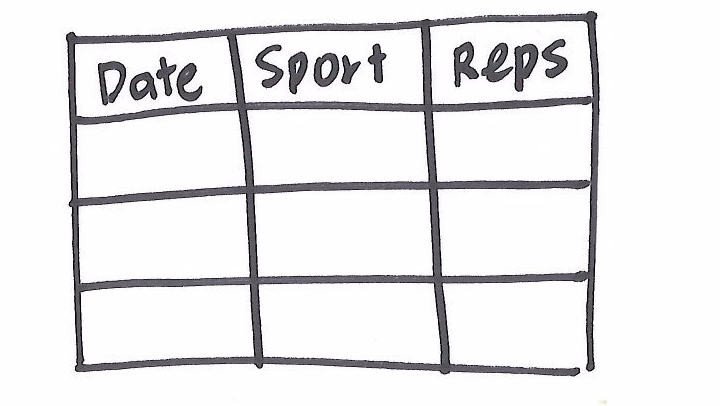 Date Sport Reps